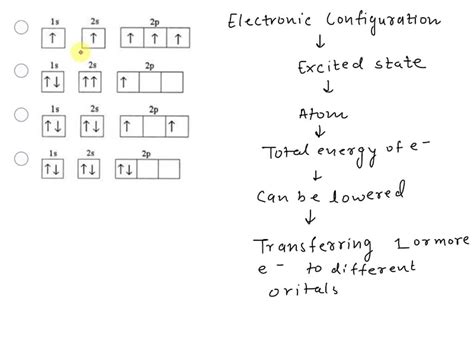 1s 2s 2p
↑ ↑ ↑ ↑ ↑
1s 2s 2p
↑↓ ↑↑ ↑
1s 2s 2p
↑↓ ↑↓ ↑ ↑
1s 2s 2p
↑↓ ↑↓ ↑↓
Electronic Configuration
↓
Excited state
↓
Atom
↓
Total energy of e-
↓
Can be lowered
↓
Transferring 1 or more
e- to different
oritals